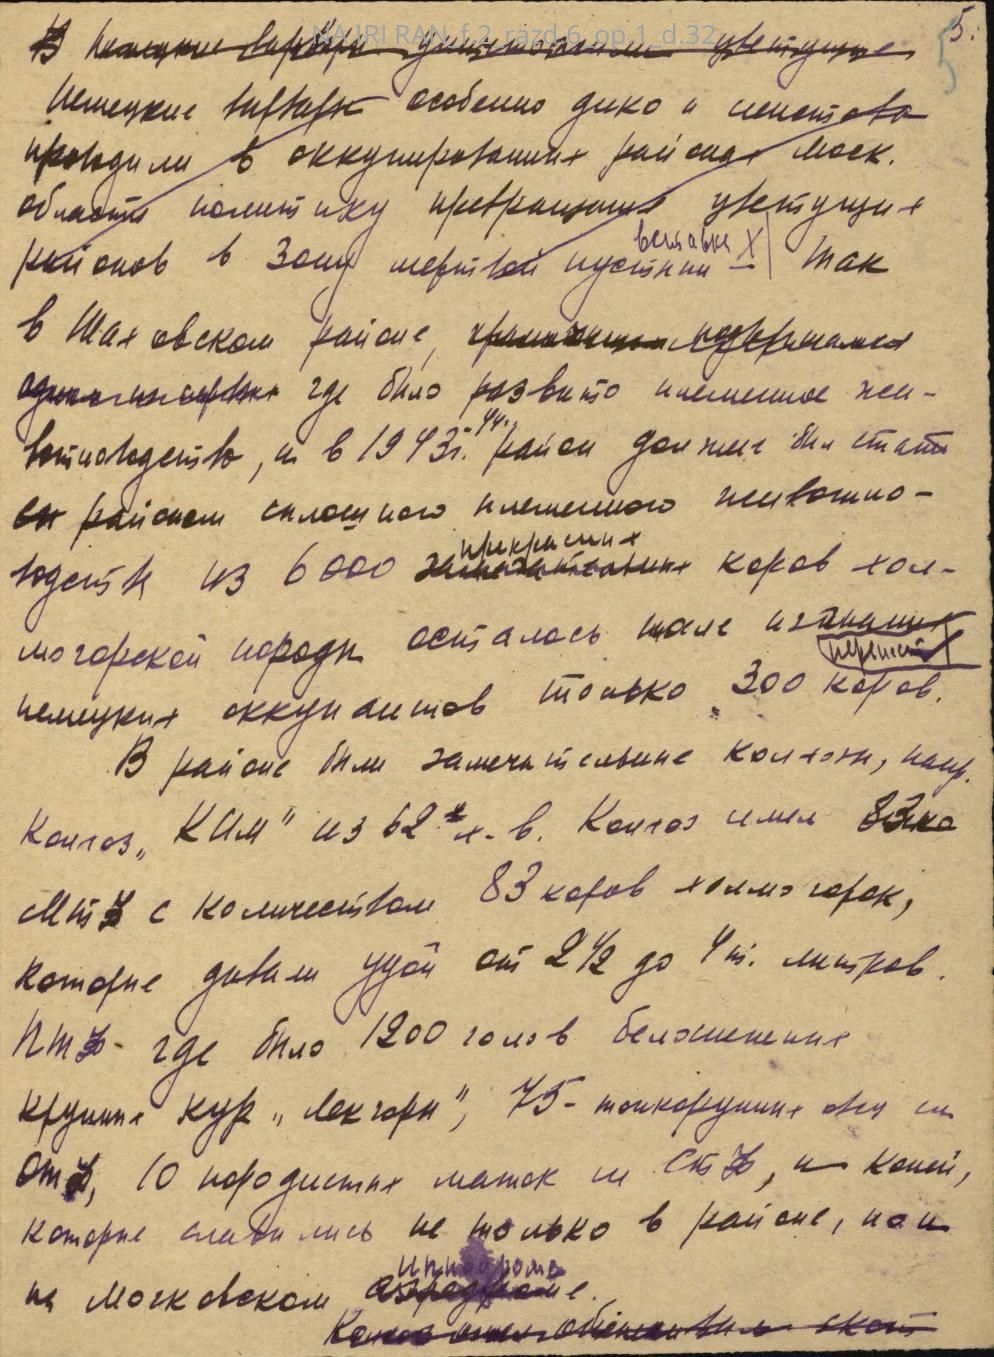 NA IRI RAN, f.2, razd.6, op.1, d.32
5.
В Немецкие варвары уничтожили цветущие
Немецкие варвары особенно дико и неистово
проводили в оккупированных районах Моск.
области политику превращения цветущих
районов в зону мертвой пустыни – вставка X Так
в Шаховском районе,
где было развито племенное жи-
вотноводство, и в 1943 г.-44. район должен был стать
районом сплошного племенного животно-
водства из 6000 замечательных прекрасных коров хол-
могорской породы осталось после изгнания
немецких оккупантов только 300 коров.
В районе были замечательные колхозы, напр.
Колхоз „КИМ" из 62 х. в. Колхоз имел
МТФ с количеством 83 коров холмогорок,
которые давали удой от 2 1/2 до 4 т. литров.
ПТФ - где было 1200 голов белоснежных
крупных кур „Легхорн", 75 - тонкорунных овец на
ОТФ, 10 породистых маток на СТФ, и коней,
которые славились не только в районе, но и
на Московском аэродроме ипподроме.
Колхоз имел скот